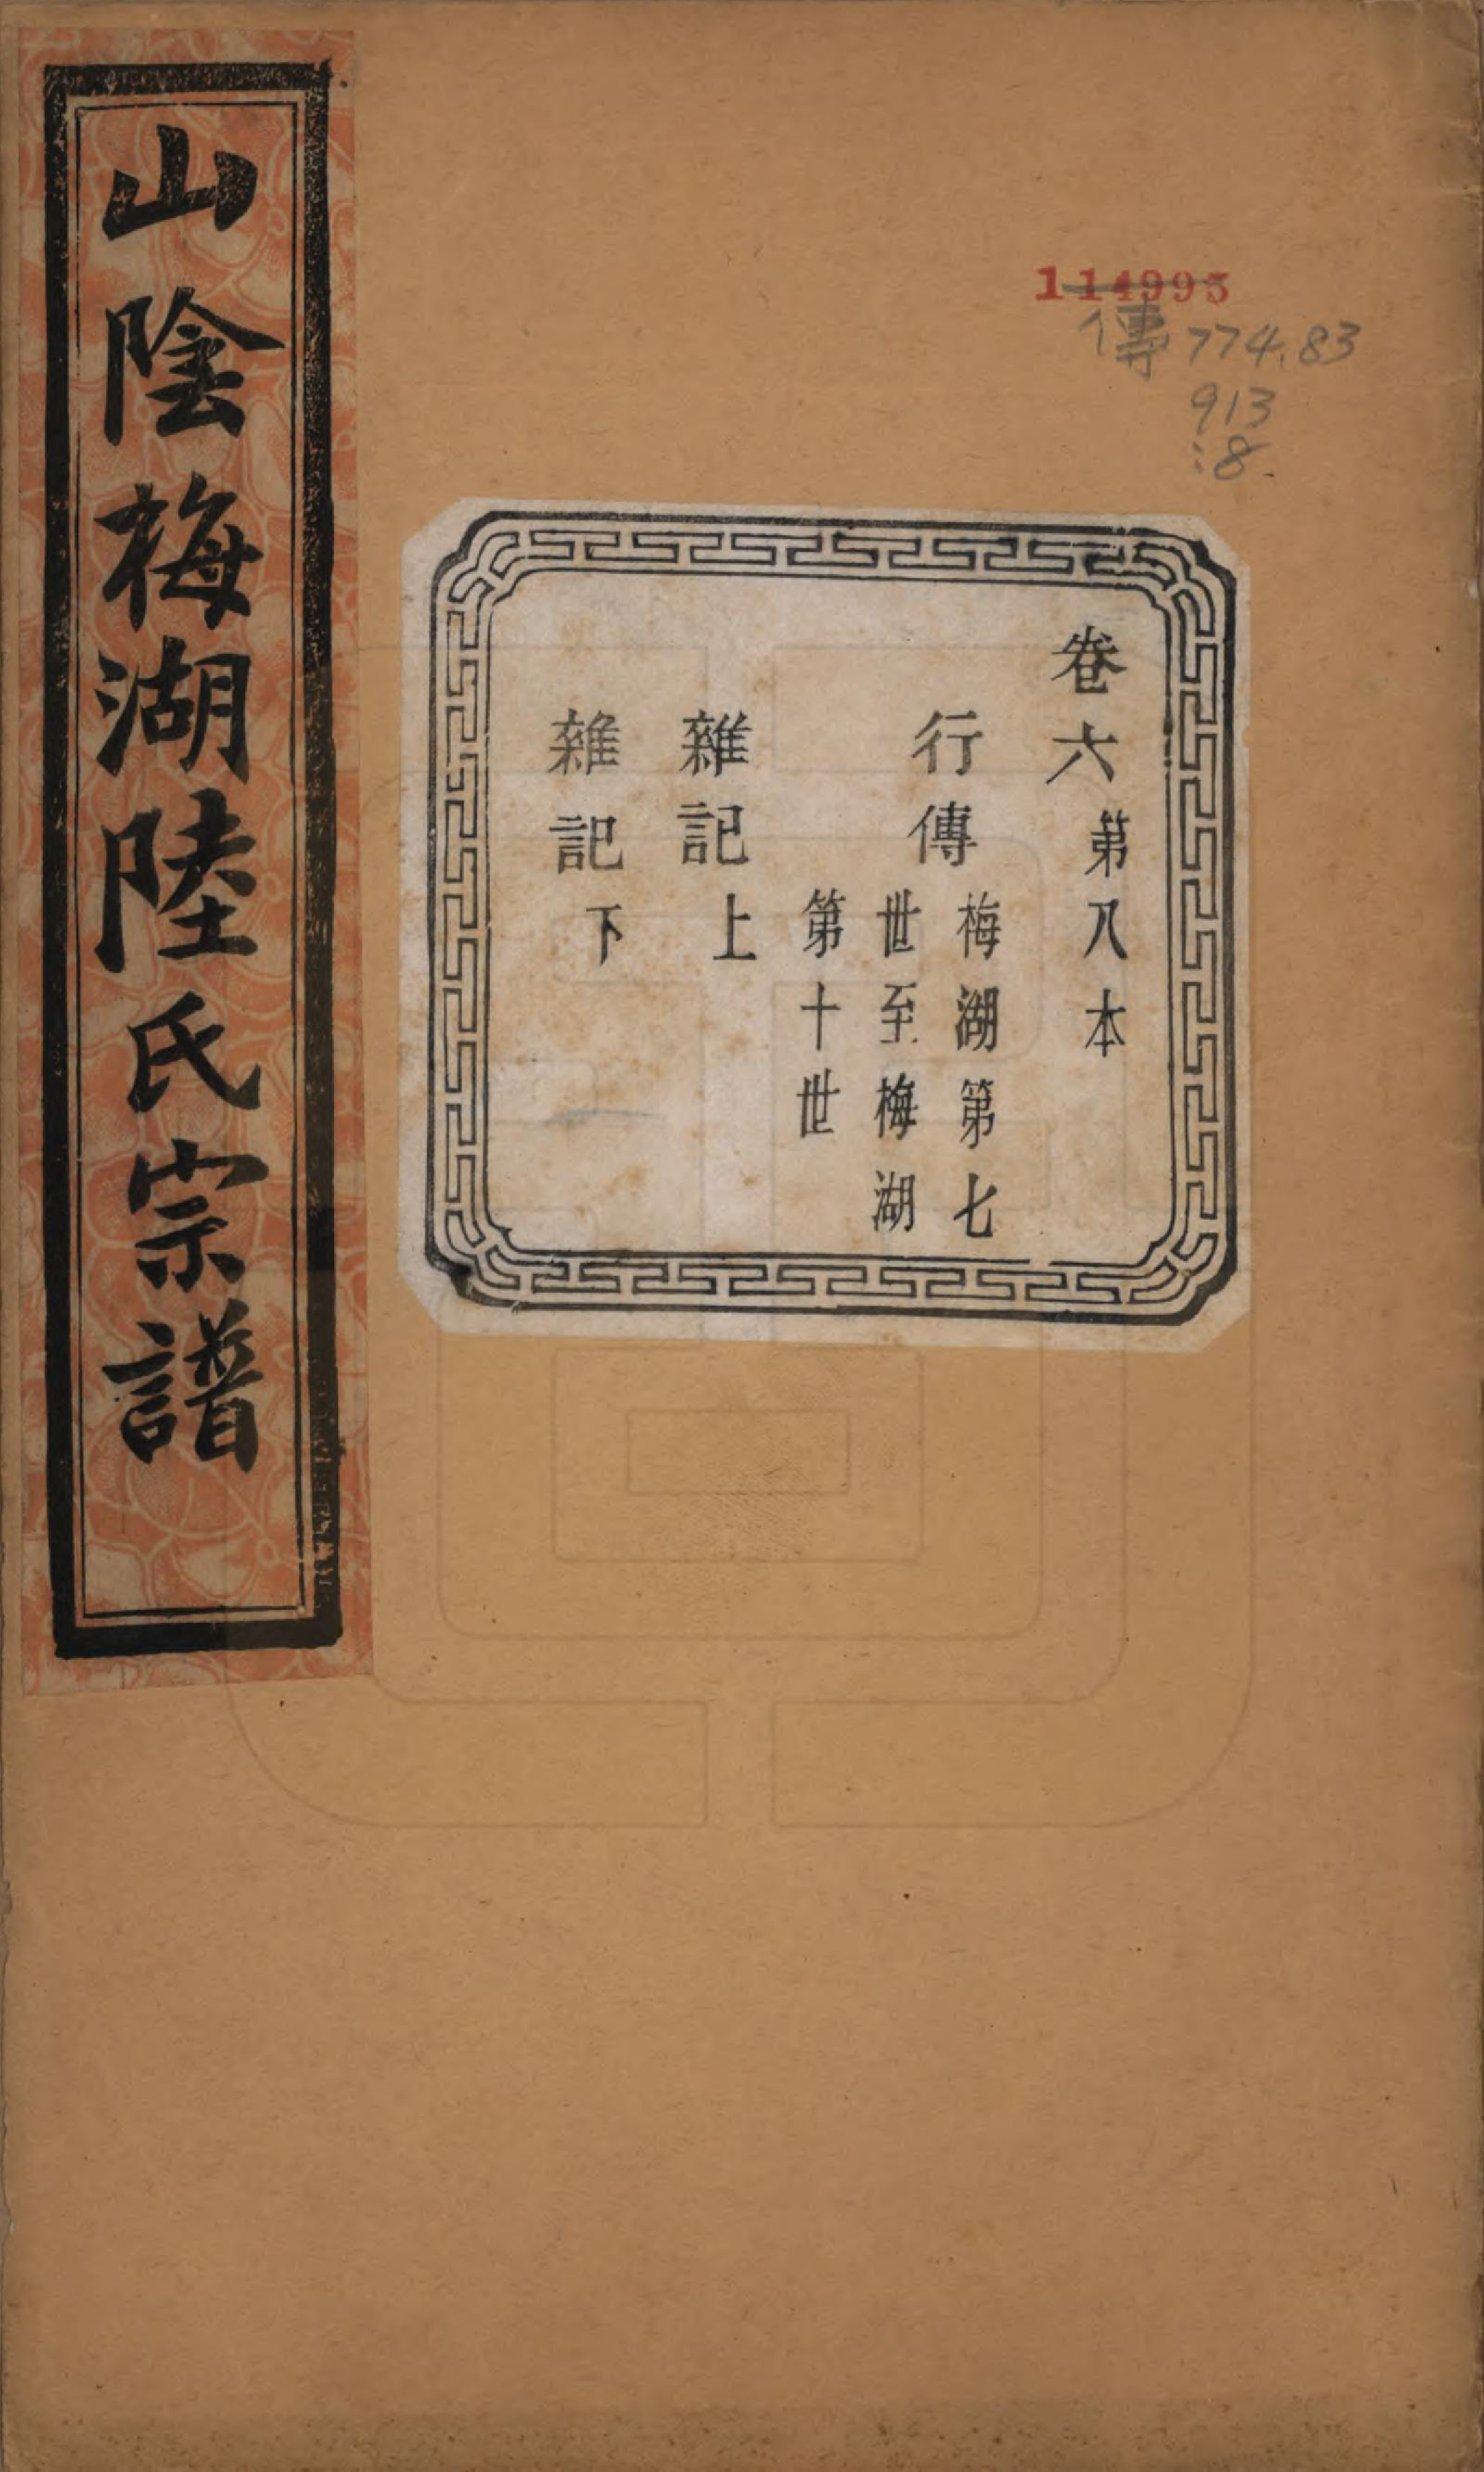 山陰梅湖陸氏宗譜
114995
傳 774.83
913
:8
卷六 第八本
行傳 梅湖第七
世至梅湖
第十世
雜記上
雜記下